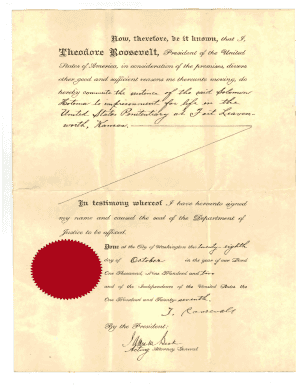 Now, therefore, be it known, that I,
Theodore Roosevelt, President of the United
States of America, in consideration of the premises, divers
other good and sufficient reasons me thereunto moving, do
hereby commute the sentence of the said Solomon
Hotema to imprisonment for life in the
United States Penitentiary at Fort Leaven-
worth, Kansas.
In testimony whereof I have hereunto signed
my name and caused the seal of the Department of
Justice to be affixed.
Done at the City of Washington this twenty eighth
day of October in the year of our Lord
One Thousand Nine Hundred and two
and of the Independence of the United States the
One Hundred and Twenty-seventh.
T. Roosevelt
By the President:
Acting Attorney General